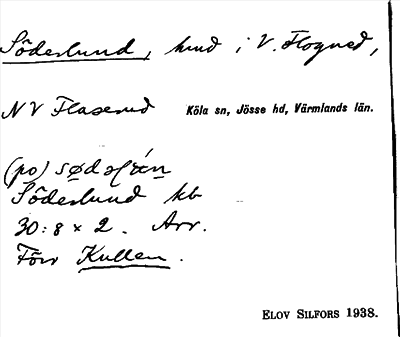 Söderlund, hmd i V. Flogned,
NV Flaserud Köla sn, Jösse hd, Värmlands län.
(po)
Söderlund kb
30:8 x 2. Arr.
Förr Kullen.
ELOV SILFORS 1938.